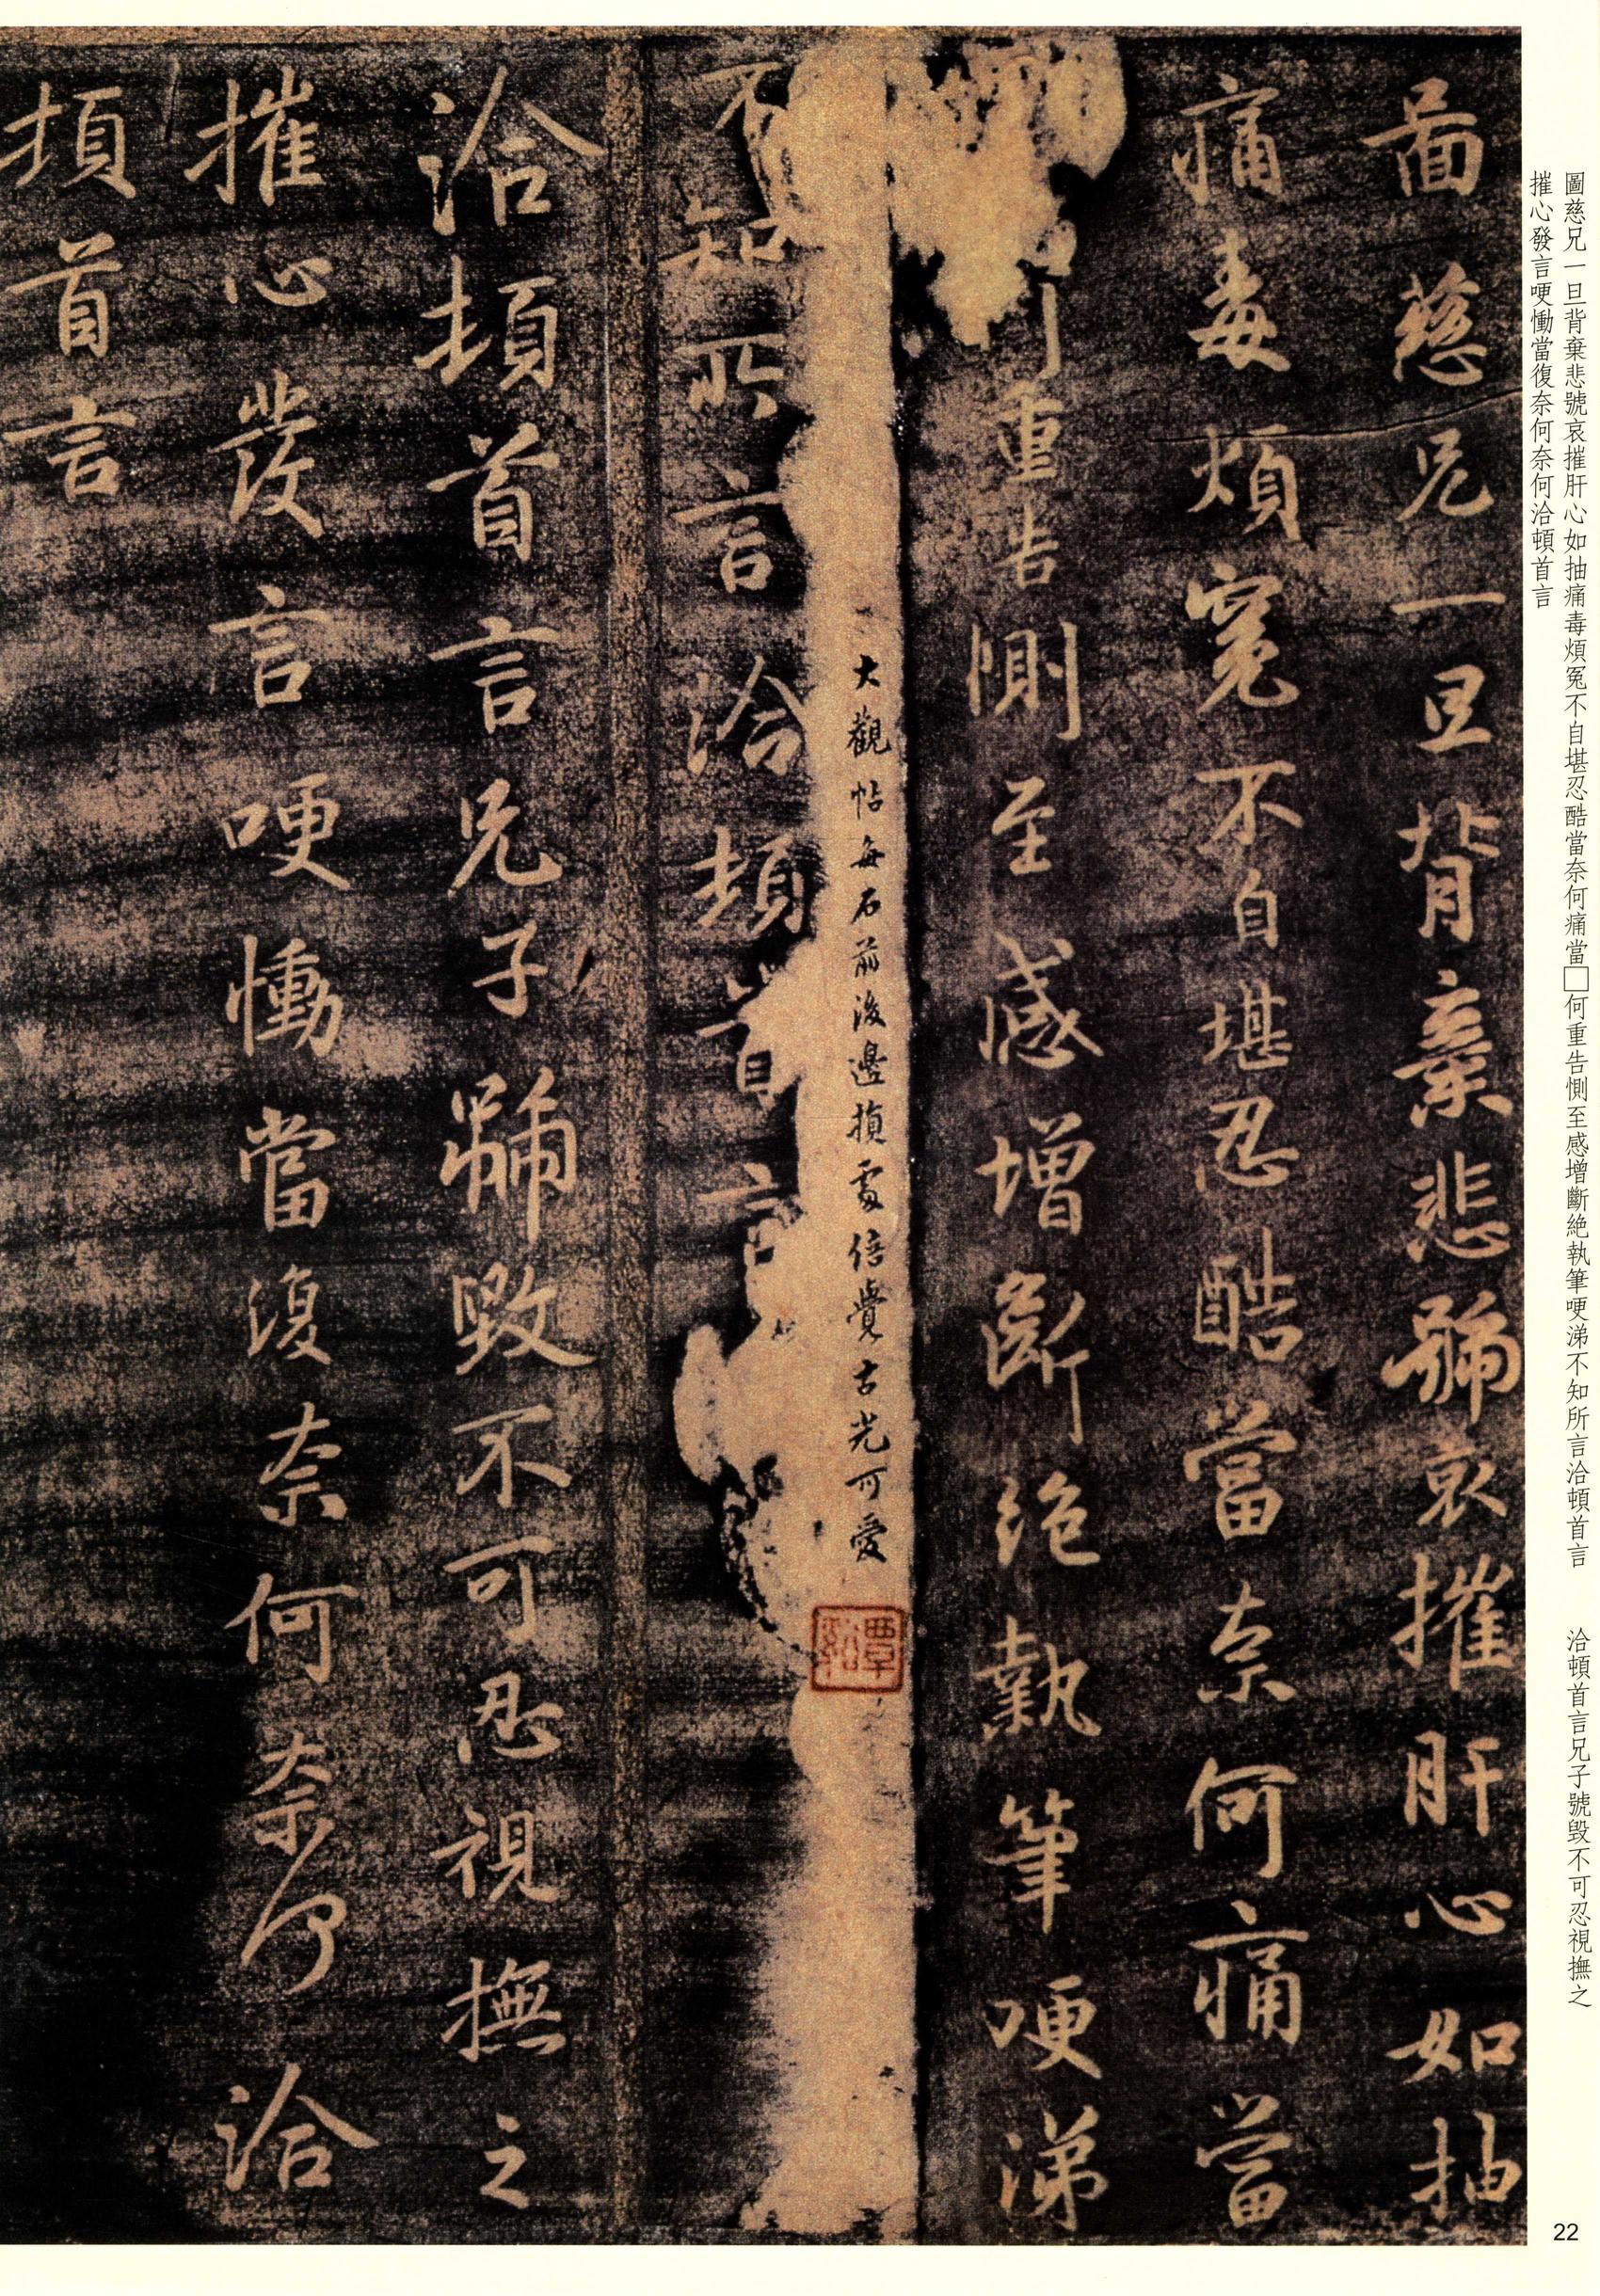 圖慈兄一旦背棄悲號哀摧肝心如抽痛毒煩冤不自堪忍酷當奈何痛當□何重告惻至感增斷絶執筆哽涕不知所言洽頓首言 洽頓首言兄子號毁不可忍視撫之
摧心發言哽慟當復奈何奈何洽頓首言
啚慈兄一旦背棄悲號哀摧肝心如抽
痛毒煩冤不自堪忍酷當奈何痛當
何重告惻至感增斷絶執筆哽涕
大觀帖每石前後邊損處倍覺古光可愛
覃谿
不知所言洽頓首言
洽頓首言兄子號毀不可忍視撫之
摧心發言哽慟當復奈何奈何洽
頓首言
22